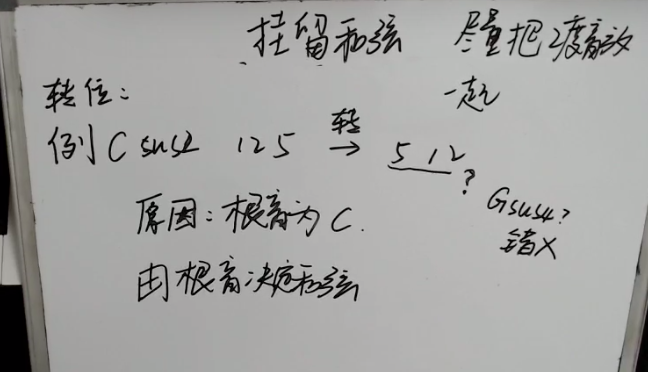 挂留和弦 尽量把2度音放
一起
转位：
例 C sus2 125 转→ 512?
Gsus4?
错×
原因：根音为C.
由根音决定和弦